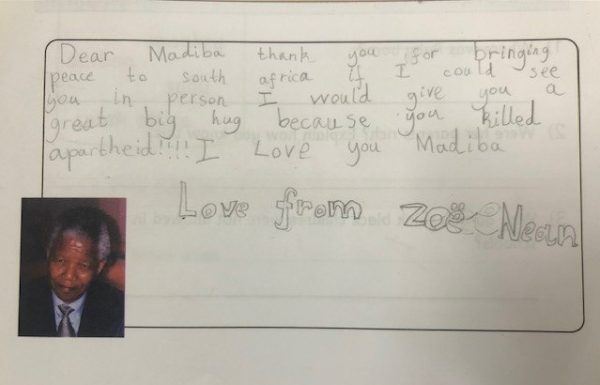 Dear Madiba thank you for bringing
peace to south africa if I could see
you in person I would give you a
great big hug because you killed
apartheid!!!! I Love you Madiba
Love from Zoë Nean